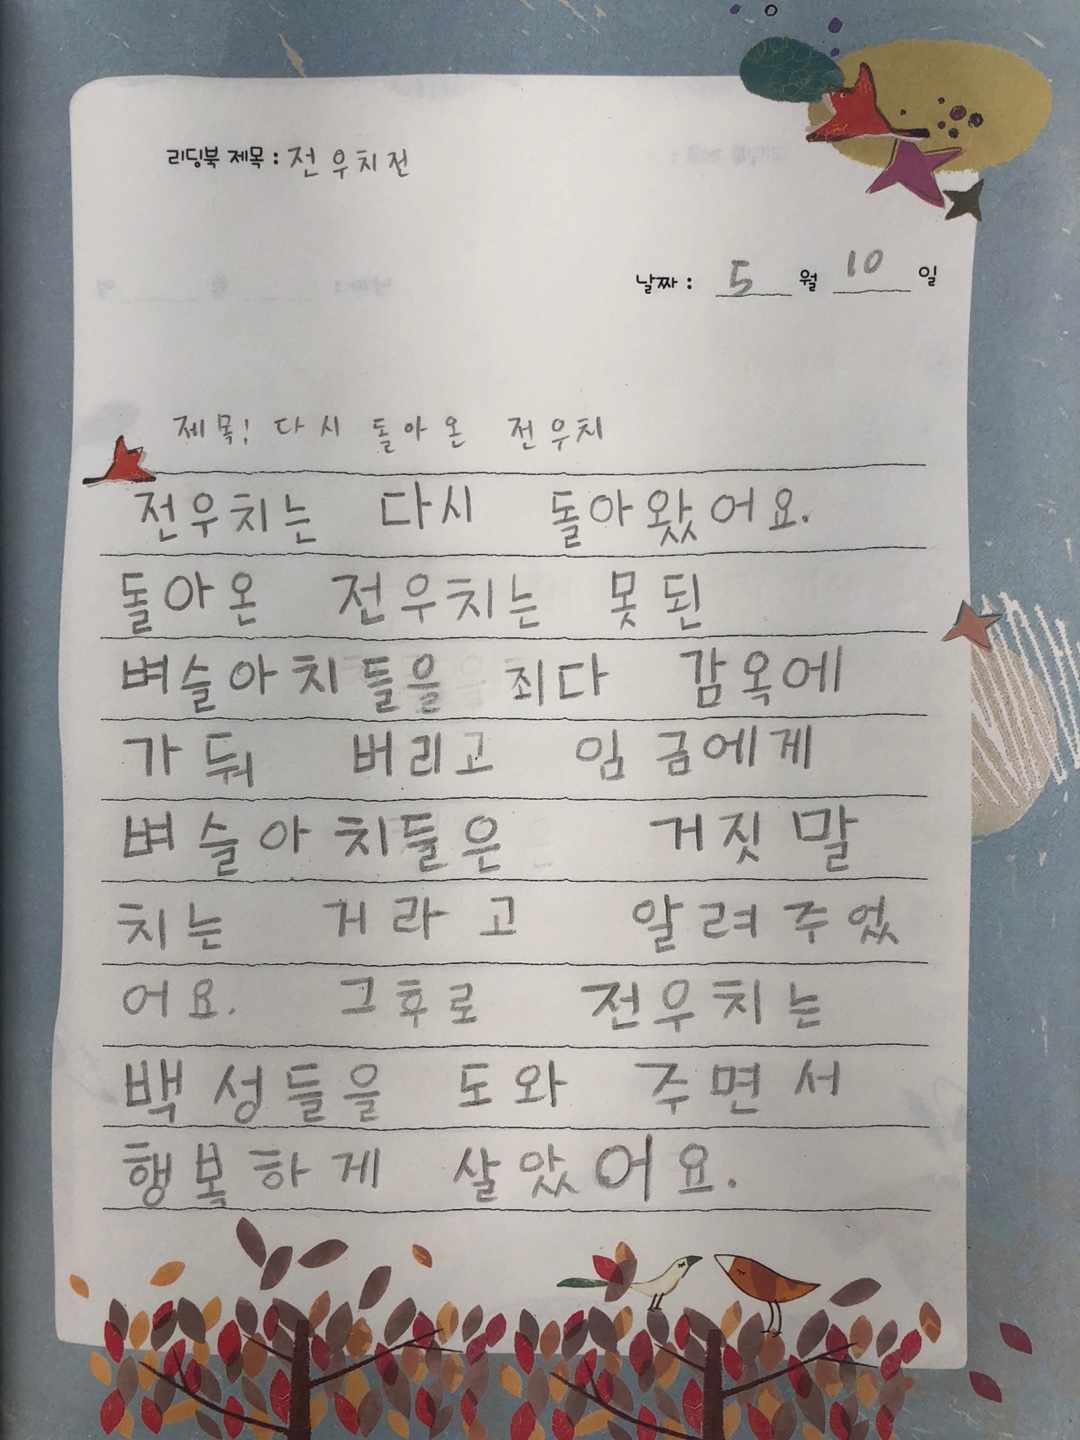 리딩북 제목 : 전우치전
날짜 : 5 월 10 일
제목! 다시 돌아온 전우치
전우치는 다시 돌아왔어요.
돌아온 전우치는 못된
벼슬아치들을 죄다 감옥에
가둬 버리고 임금에게
벼슬아치들은 거짓말
치는 거라고 알려주었
어요. 그후로 전우치는
백성들을 도와 주면서
행복하게 살았어요.